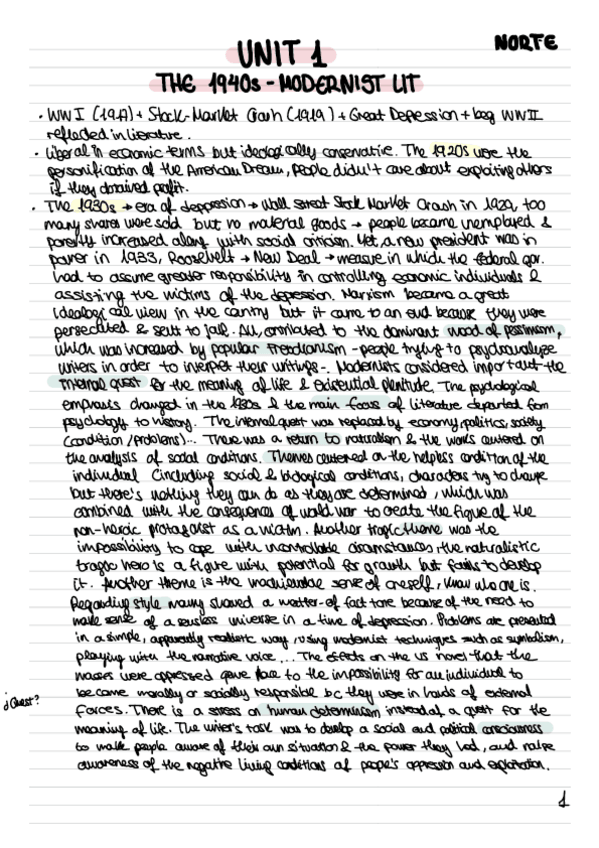 NORTE
UNIT 1
THE 1940s - MODERNIST LIT
· WWI (1917) + Stock-Market Crash (1919) + Great Depession + beg WWII
reflected in literature.
· Liberal in economic terms but ideologically conservative. The 1920s were the
personification of the American Dream, people didn't care about exploiting others
if they obtained profit.
· The 1930s → era of depression → Wall Street Stock Market Crash in 1929, too
many shares were sold but no material goods → people became unemployed &
poverty increased along with social criticism. Yet, a new president was in
power in 1933, Roosevelt → New Deal → measure in which the federal gov.
had to assume greater responsibility in controlling economic individuals &
assisting the victims of the depression. Marxism became a great
ideological view in the country but it came to an end because they were
persecuted & sent to jail. All, contributed to the dominant mood of pessimism,
which was increased by popular Freudianism - people trying to psychoanalyze
writers in order to interpret their writings -. Modernists considered important the
internal quest for the meaning of life & existential plenitude. The psychological
emphasis changed in the 1930s & the main focus of literature departed from
psychology to history. The internal quest was replaced by economy, politics, society
(condition / problems)... There was a return to naturalism & the works centered on
the analysis of social conditions. Themes centered on the helpless condition of the
individual (including social & biological conditions, characters try to change
but there's nothing they can do as they are determined, which was
combined with the consequences of world war to create the figure of the
non-heroic protagonist as a victim. Another tragic theme was the
impossibility to cope with uncontrollable circumstances, the naturalistic
tragic hero is a figure with potential for growth but fails to develop
it. Another theme is the unachievable sense of oneself, know who one is.
Regarding style many shared a matter-of fact tone because of the need to
make sense of a senseless universe in a time of depression. Problems are presented
in a simple, apparently realistic way, using modernist techniques such as symbolism,
playing with the narrative voice... The effects on the US novel that the
masses were oppressed gave place to the impossibility for an individual to
become morally or socially responsible bc they were in hands of external
¿Quest?
forces. There is a stress on human determinism instead of a quest for the
meaning of life. The writer's task was to develop a social and political consciousness
to make people aware of their own situation & the power they had, and raise
awareness of the negative living conditions of people's oppression and exploitation.
1